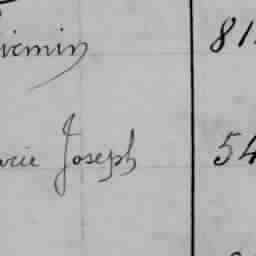 icmin 81
arie Joseph 54